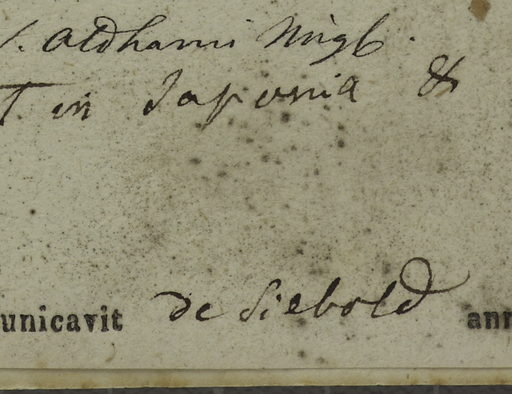 . Oldhami Miqb.
in Japonia &
unicavit de Siebold ann